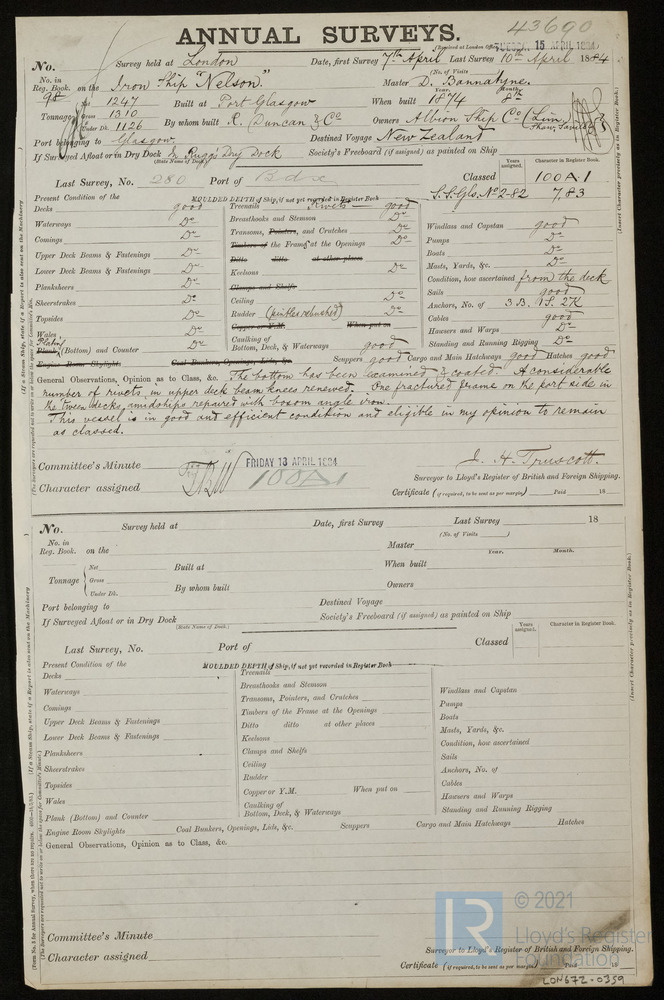 43690
ANNUAL SURVEYS.
Received at London Office TUESDAY 15 APRIL 1884
No. Survey held at London Date, first Survey 7th April Last Survey 10th April 1884
(No. of Visits )
No. in Reg. Book. on the Iron Ship "Nelson." Master D. Bannatyne.
Year. Month.
Net 1247 Built at Port Glasgow When built 1874 8th
Tonnage Gross 1310
Under Dk. 1126 By whom built R. Duncan & Co Owners Albion Ship Co (Lim.
Port belonging to Glasgow Destined Voyage New Zealand
If Surveyed Afloat or in Dry Dock In Rugg's Dry Dock Society's Freeboard (if assigned) as painted on Ship
(State Name of Dock.)
Years assigned. Character in Register Book.
Last Survey, No. 280 Port of Bdx Classed 100A1
S.S.Gls. No 2-82 7,83
Present Condition of the MOULDED DEPTH of Ship, if not yet recorded in Register Book
Decks good Treenails Rivets good
Waterways Do Breasthooks and Stemson Do Windlass and Capstan good
Comings Do Transoms, Pointers, and Crutches Do Pumps Do
Upper Deck Beams & Fastenings Do Timbers of the Frame at the Openings Do Boats Do
Ditto ditto at other places
Lower Deck Beams & Fastenings Do Keelsons Do Masts, Yards, &c. Do
Planksheers Do Clamps and Shelfs Condition, how ascertained from the deck
Sheerstrakes Do Ceiling Do Sails good
Topsides Do Rudder (pintles rebushed) Do Anchors, No. of 3B. 1S. 2K
Wales Do Copper or Y.M. When put on Cables good
Hawsers and Warps Do
Plating
Plank (Bottom) and Counter Do Caulking of Bottom, Deck, & Waterways good Standing and Running Rigging Do
Engine Room Skylights Coal Bunkers, Openings, Lids, &c. Scuppers good Cargo and Main Hatchways good Hatches good
General Observations, Opinion as to Class, &c. The bottom has been examined & coated. A considerable
number of rivets in upper deck beam knees renewed. One fractured frame on the port side in
the tween decks, amidships repaired with bosom angle iron.
This vessel is in good and efficient condition and eligible in my opinion to remain
as classed.
Committee's Minute FRIDAY 18 APRIL 1884
J. H. Truscott.
Character assigned 100A1
Surveyor to Lloyd's Register of British and Foreign Shipping.
Certificate (if required, to be sent as per margin) Paid 18
No. Survey held at Date, first Survey Last Survey 18
(No. of Visits )
No. in Reg. Book. on the Master
Year. Month.
Net Built at When built
Tonnage Gross
Under Dk. By whom built Owners
Port belonging to Destined Voyage
If Surveyed Afloat or in Dry Dock Society's Freeboard (if assigned) as painted on Ship
(State Name of Dock.)
Years assigned. Character in Register Book.
Last Survey, No. Port of Classed
Present Condition of the MOULDED DEPTH of Ship, if not yet recorded in Register Book
Decks Treenails
Waterways Breasthooks and Stemson Windlass and Capstan
Comings Transoms, Pointers, and Crutches Pumps
Upper Deck Beams & Fastenings Timbers of the Frame at the Openings Boats
Lower Deck Beams & Fastenings Ditto ditto at other places Masts, Yards, &c.
Planksheers Keelsons Condition, how ascertained
Sheerstrakes Clamps and Shelfs Sails
Topsides Ceiling Anchors, No. of
Wales Rudder Cables
Copper or Y.M. When put on Hawsers and Warps
Plank (Bottom) and Counter Caulking of Bottom, Deck, & Waterways Standing and Running Rigging
Engine Room Skylights Coal Bunkers, Openings, Lids, &c. Scuppers Cargo and Main Hatchways Hatches
General Observations, Opinion as to Class, &c.
Committee's Minute
Character assigned
Surveyor to Lloyd's Register of British and Foreign Shipping.
Certificate (if required, to be sent as per margin) Paid 18
LR
© 2021
Lloyd's Register
Foundation
LON672-0359